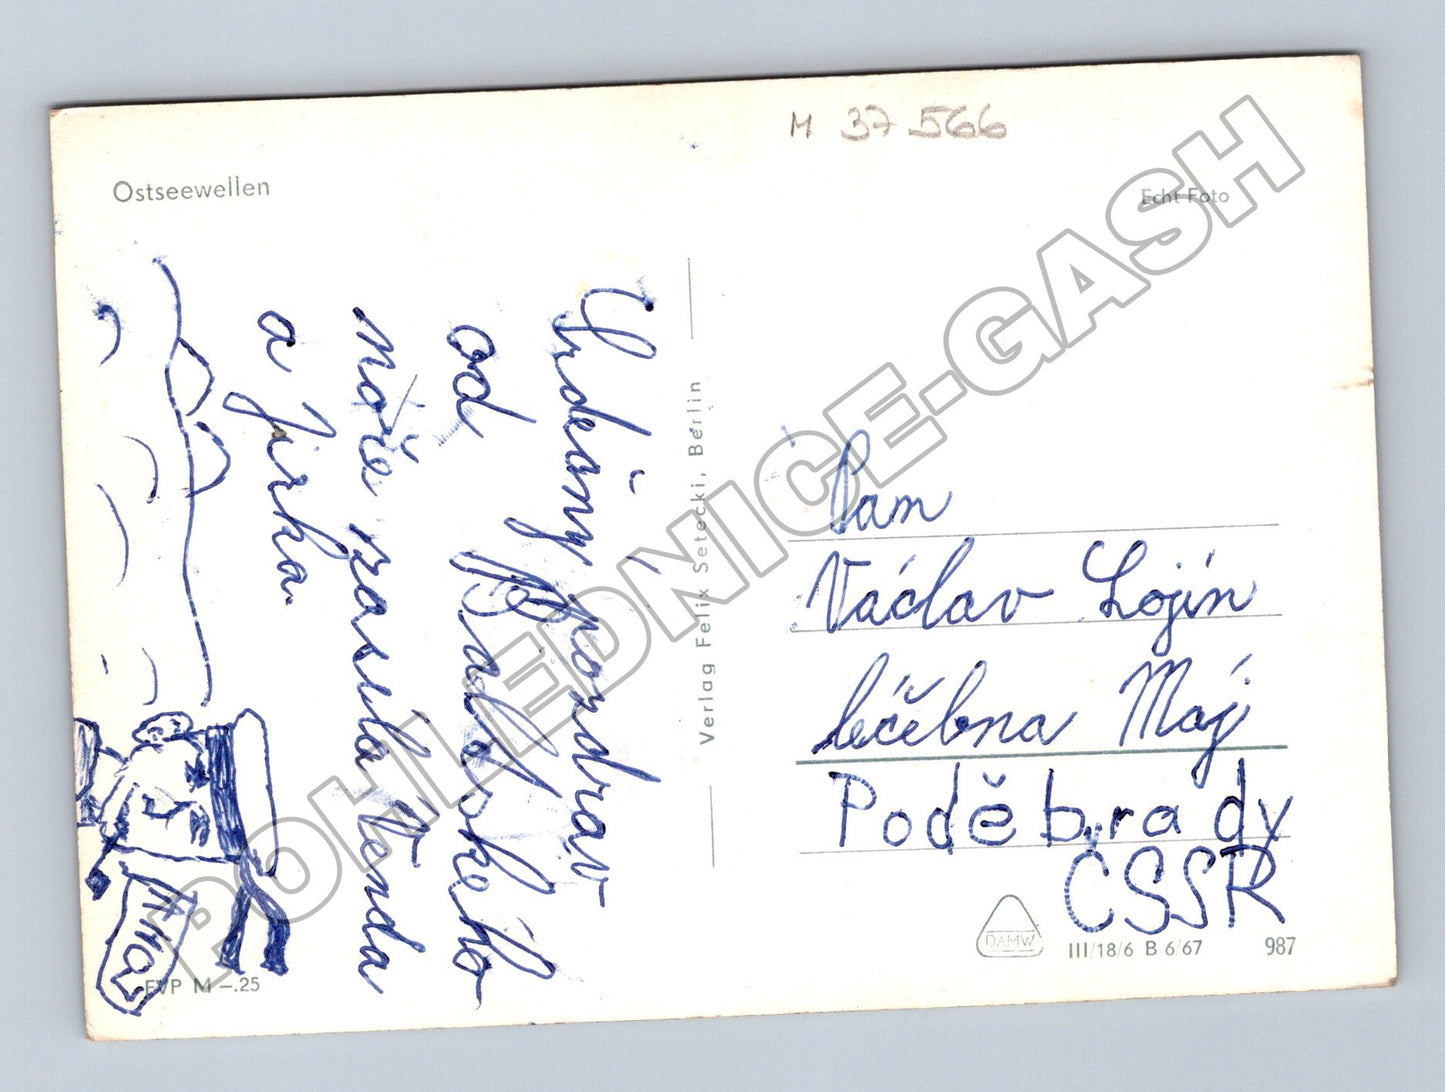 M 37 566
Ostseewellen
Echt Foto
Srdečný pozdrav
od Baltského
moře zasílá Vánda
a Jirka.
Verlag Felix Setecki, Berlin
Pam
Václav Lojín
léčébna Máj
Poděbrady
ČSSR
DAMW
III/18/6 B 6/67 987
EVP M –.25
POHLEDNICE-GASH